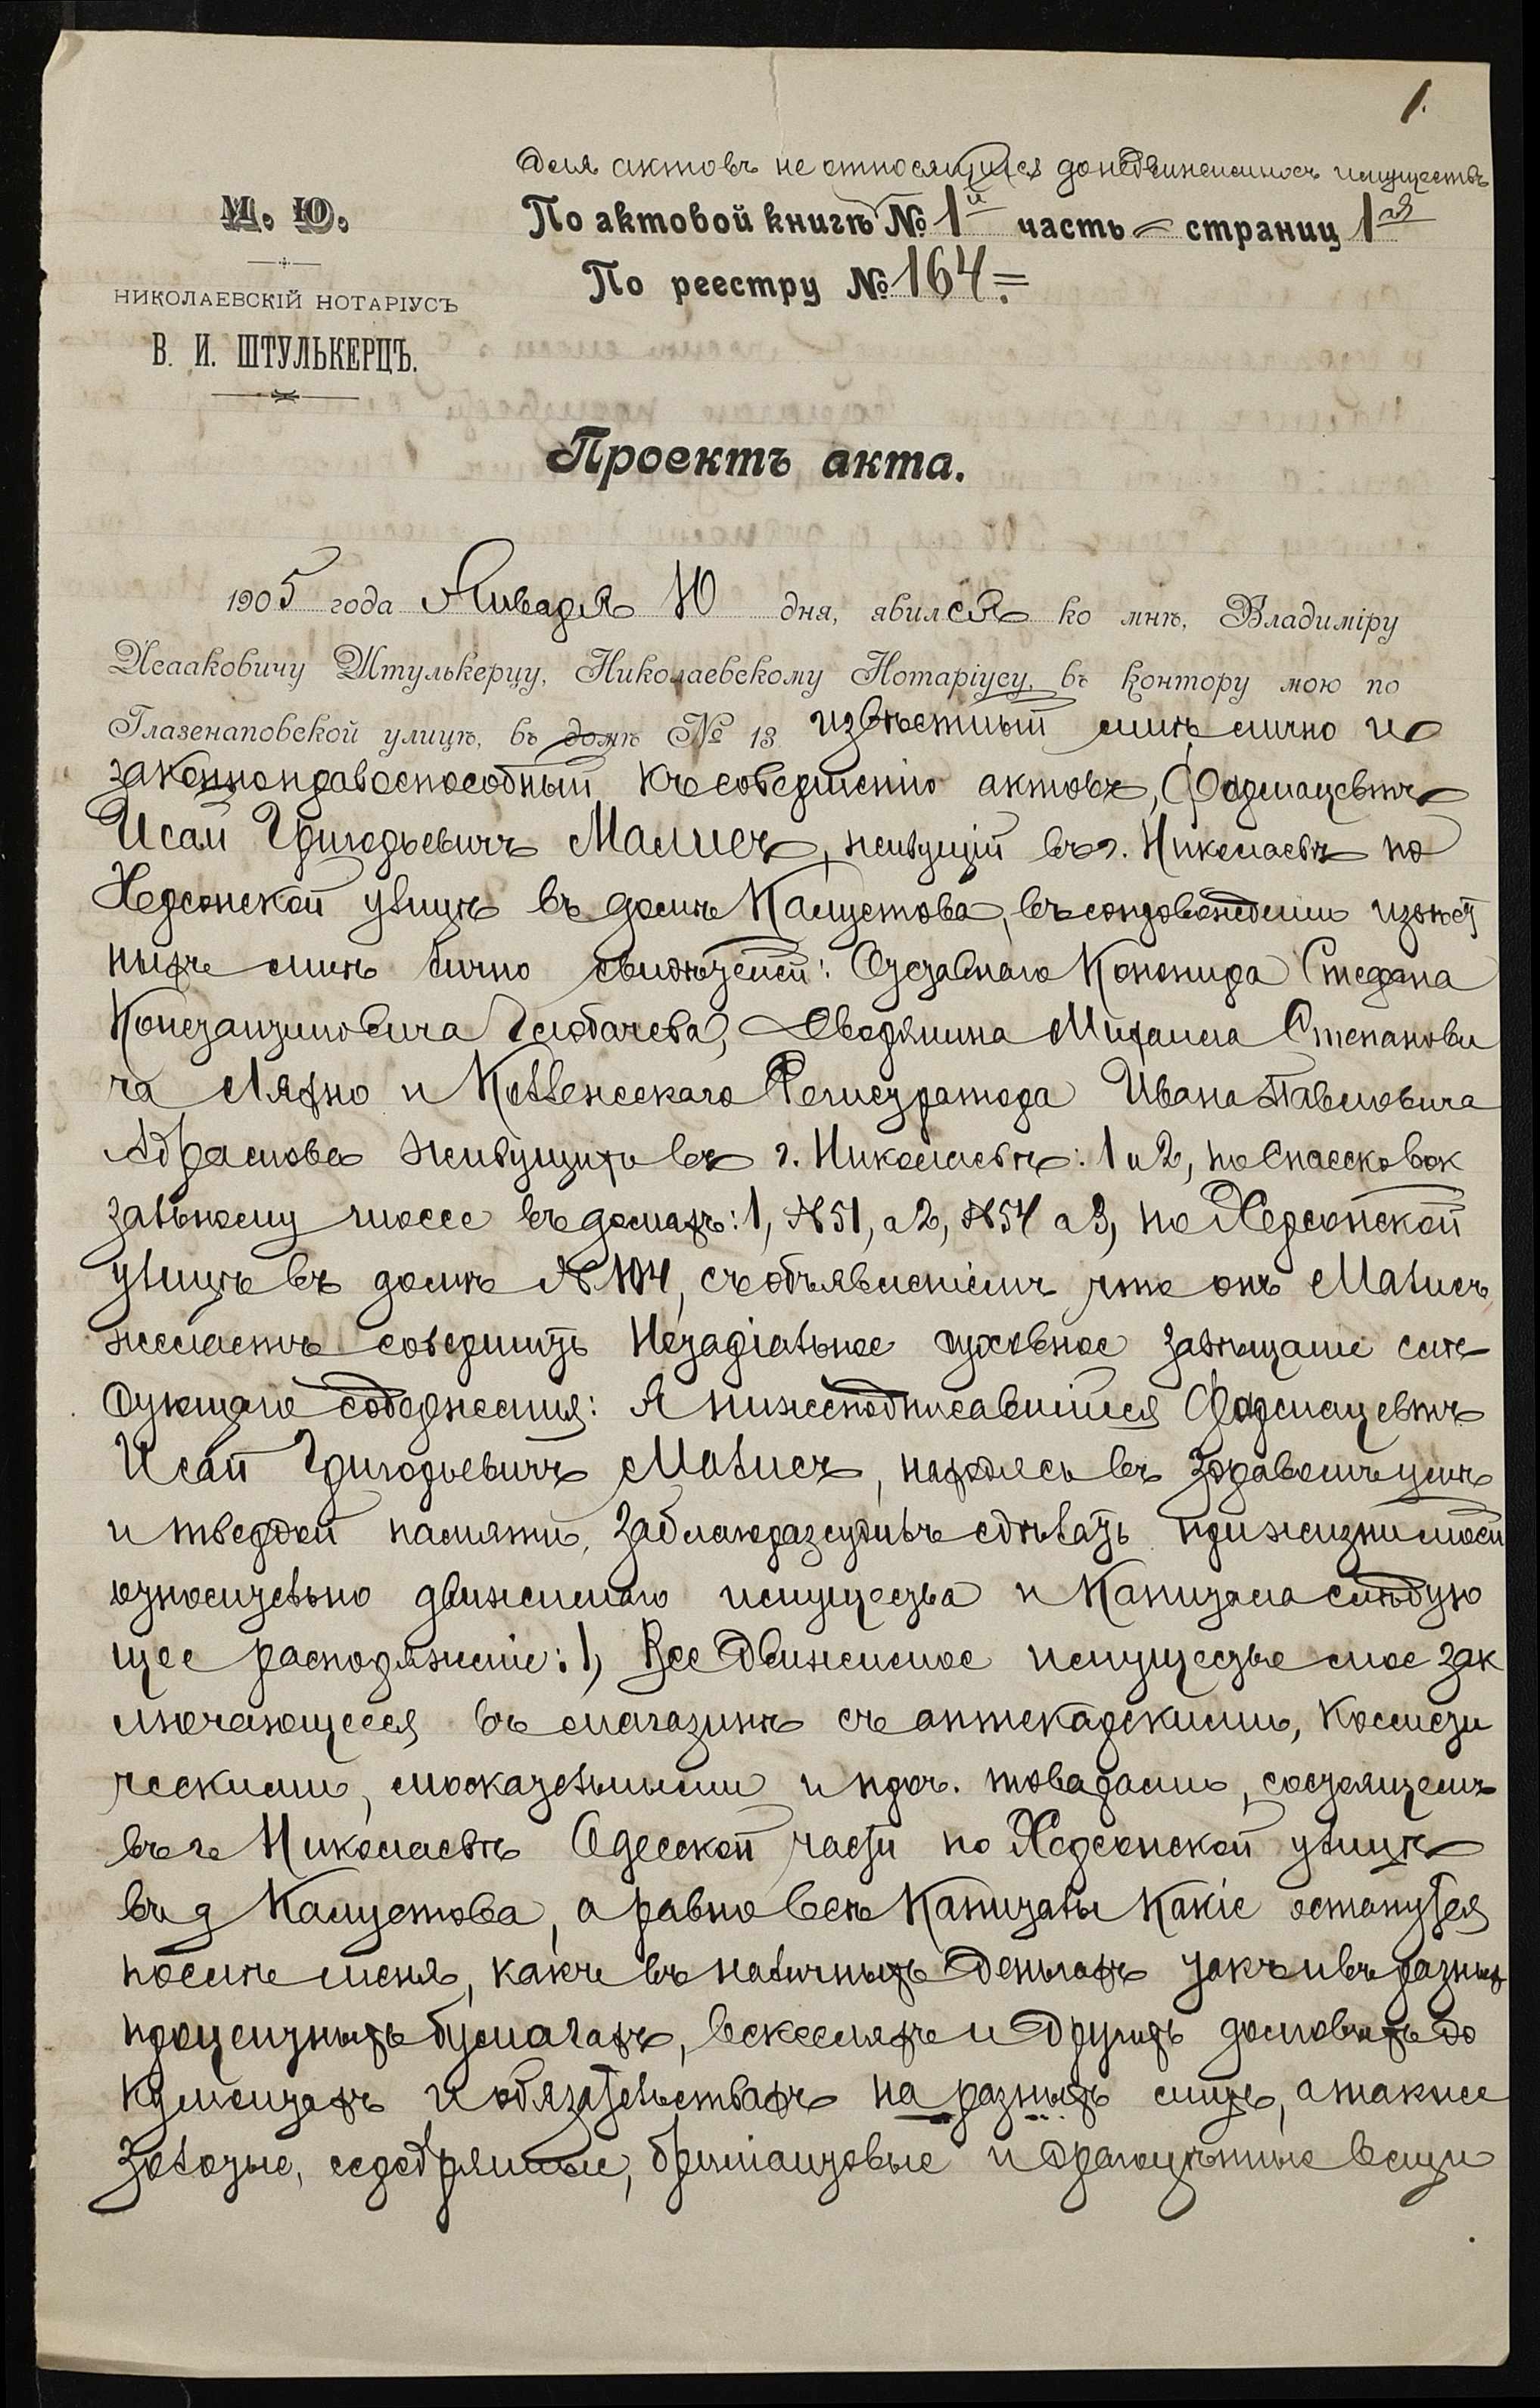 1.
Для актовъ не относящихся до недвижимыхъ имуществъ
М. Ю.
По актовой книгѣ № 1й часть – страниц 1ая
По реестру № 164.
НИКОЛАЕВСКІЙ НОТАРІУСЪ
В. И. ШТУЛЬКЕРЦЪ.
Проектъ акта.
1905 года Января 10 дня, явился ко мнѣ, Владиміру
Исааковичу Штулькерцу, Николаевскому Нотаріусу, въ контору мою по
Глазенаповской улицѣ, въ домѣ № 13 извѣстный мнѣ лично и
законноправоспособный къ совершенію актовъ, Фармацевтъ
Исай Григорьевичъ Малисъ, живущій въ г. Николаевѣ по
Херсонской улицѣ въ домѣ Калустова, въ сопровожденіи извѣст
ныхъ мнѣ лично свидѣтелей: Отставнаго Кононира Стефана
Константиновича Голобачева, Дворянина Михаила Степанови
ча Ляхно и Коллежскаго Регистратора Ивана Павловича
Абрамова живущихъ въ г. Николаевѣ: 1 и 2, по Спасско Вок
зальному шоссе въ домахъ: 1, №51, а 2, №54 а 3, по Херсонской
улицѣ въ домѣ № 104, съ объявленіемъ что онъ Малисъ
желаетъ совершить Нотаріальное духовное завѣщаніе слѣ
дующаго содержанія: Я нижеподписавшійся Фармацевтъ
Исай Григорьевичъ Малисъ, находясь въ здравомъ умѣ
и твердой памяти, заблагоразсудивъ сдѣлать при жизни моей
относительно движимаго имущества и Капитала слѣдую
щее распоряженіе: 1, Все движимое имущество мое зак
лючающееся въ магазинѣ съ аптекарскими, космети
ческими, москательными и проч. товарами, состоящемъ
въ г. Николаевѣ Одесской части по Херсонской улицѣ
въ д Калустова, а равно всѣ Капиталы какіе останутся
послѣ меня, какъ въ наличныхъ деньгахъ такъ и въ разныхъ
процентныхъ бумагахъ, векселяхъ и другихъ долговыхъ до
кументахъ и обязательствахъ на разныхъ лицъ, а также
золотые, серебряные, брилліантовые и драгоцѣнные вещи